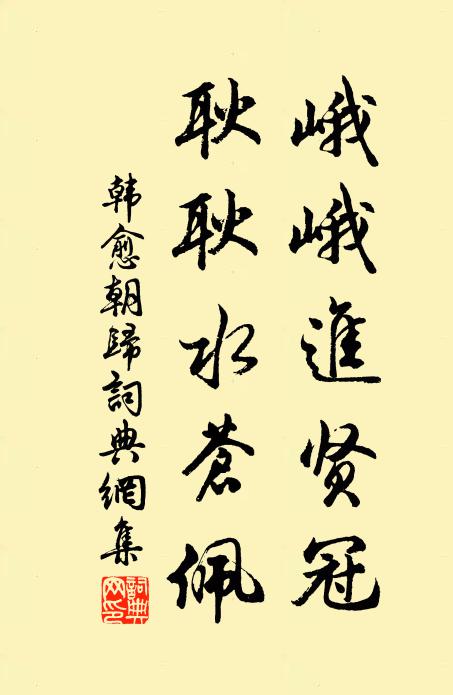 峨峨進贤冠
耿耿水蒼佩
韩愈朝歸詞典網集
詞典网印